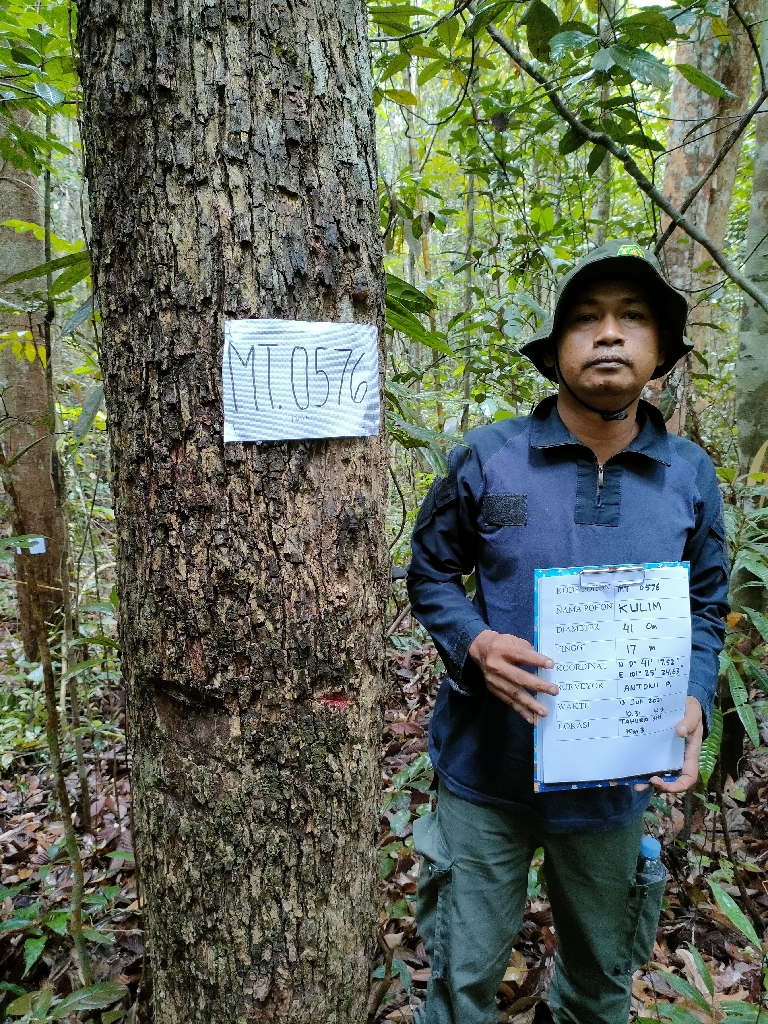 MT.0576
KODE POHON MT 0576
NAMA POHON KULIM
DIAMETER 41 Cm
TINGGI 17 m
KOORDINAT N 0° 41' 17.52"
E 101° 25' 24.63"
SURVEYOR ANTONI P.
WAKTU 13 JUN 2021
10.31
LOKASI TAHURA SSH
KM 3